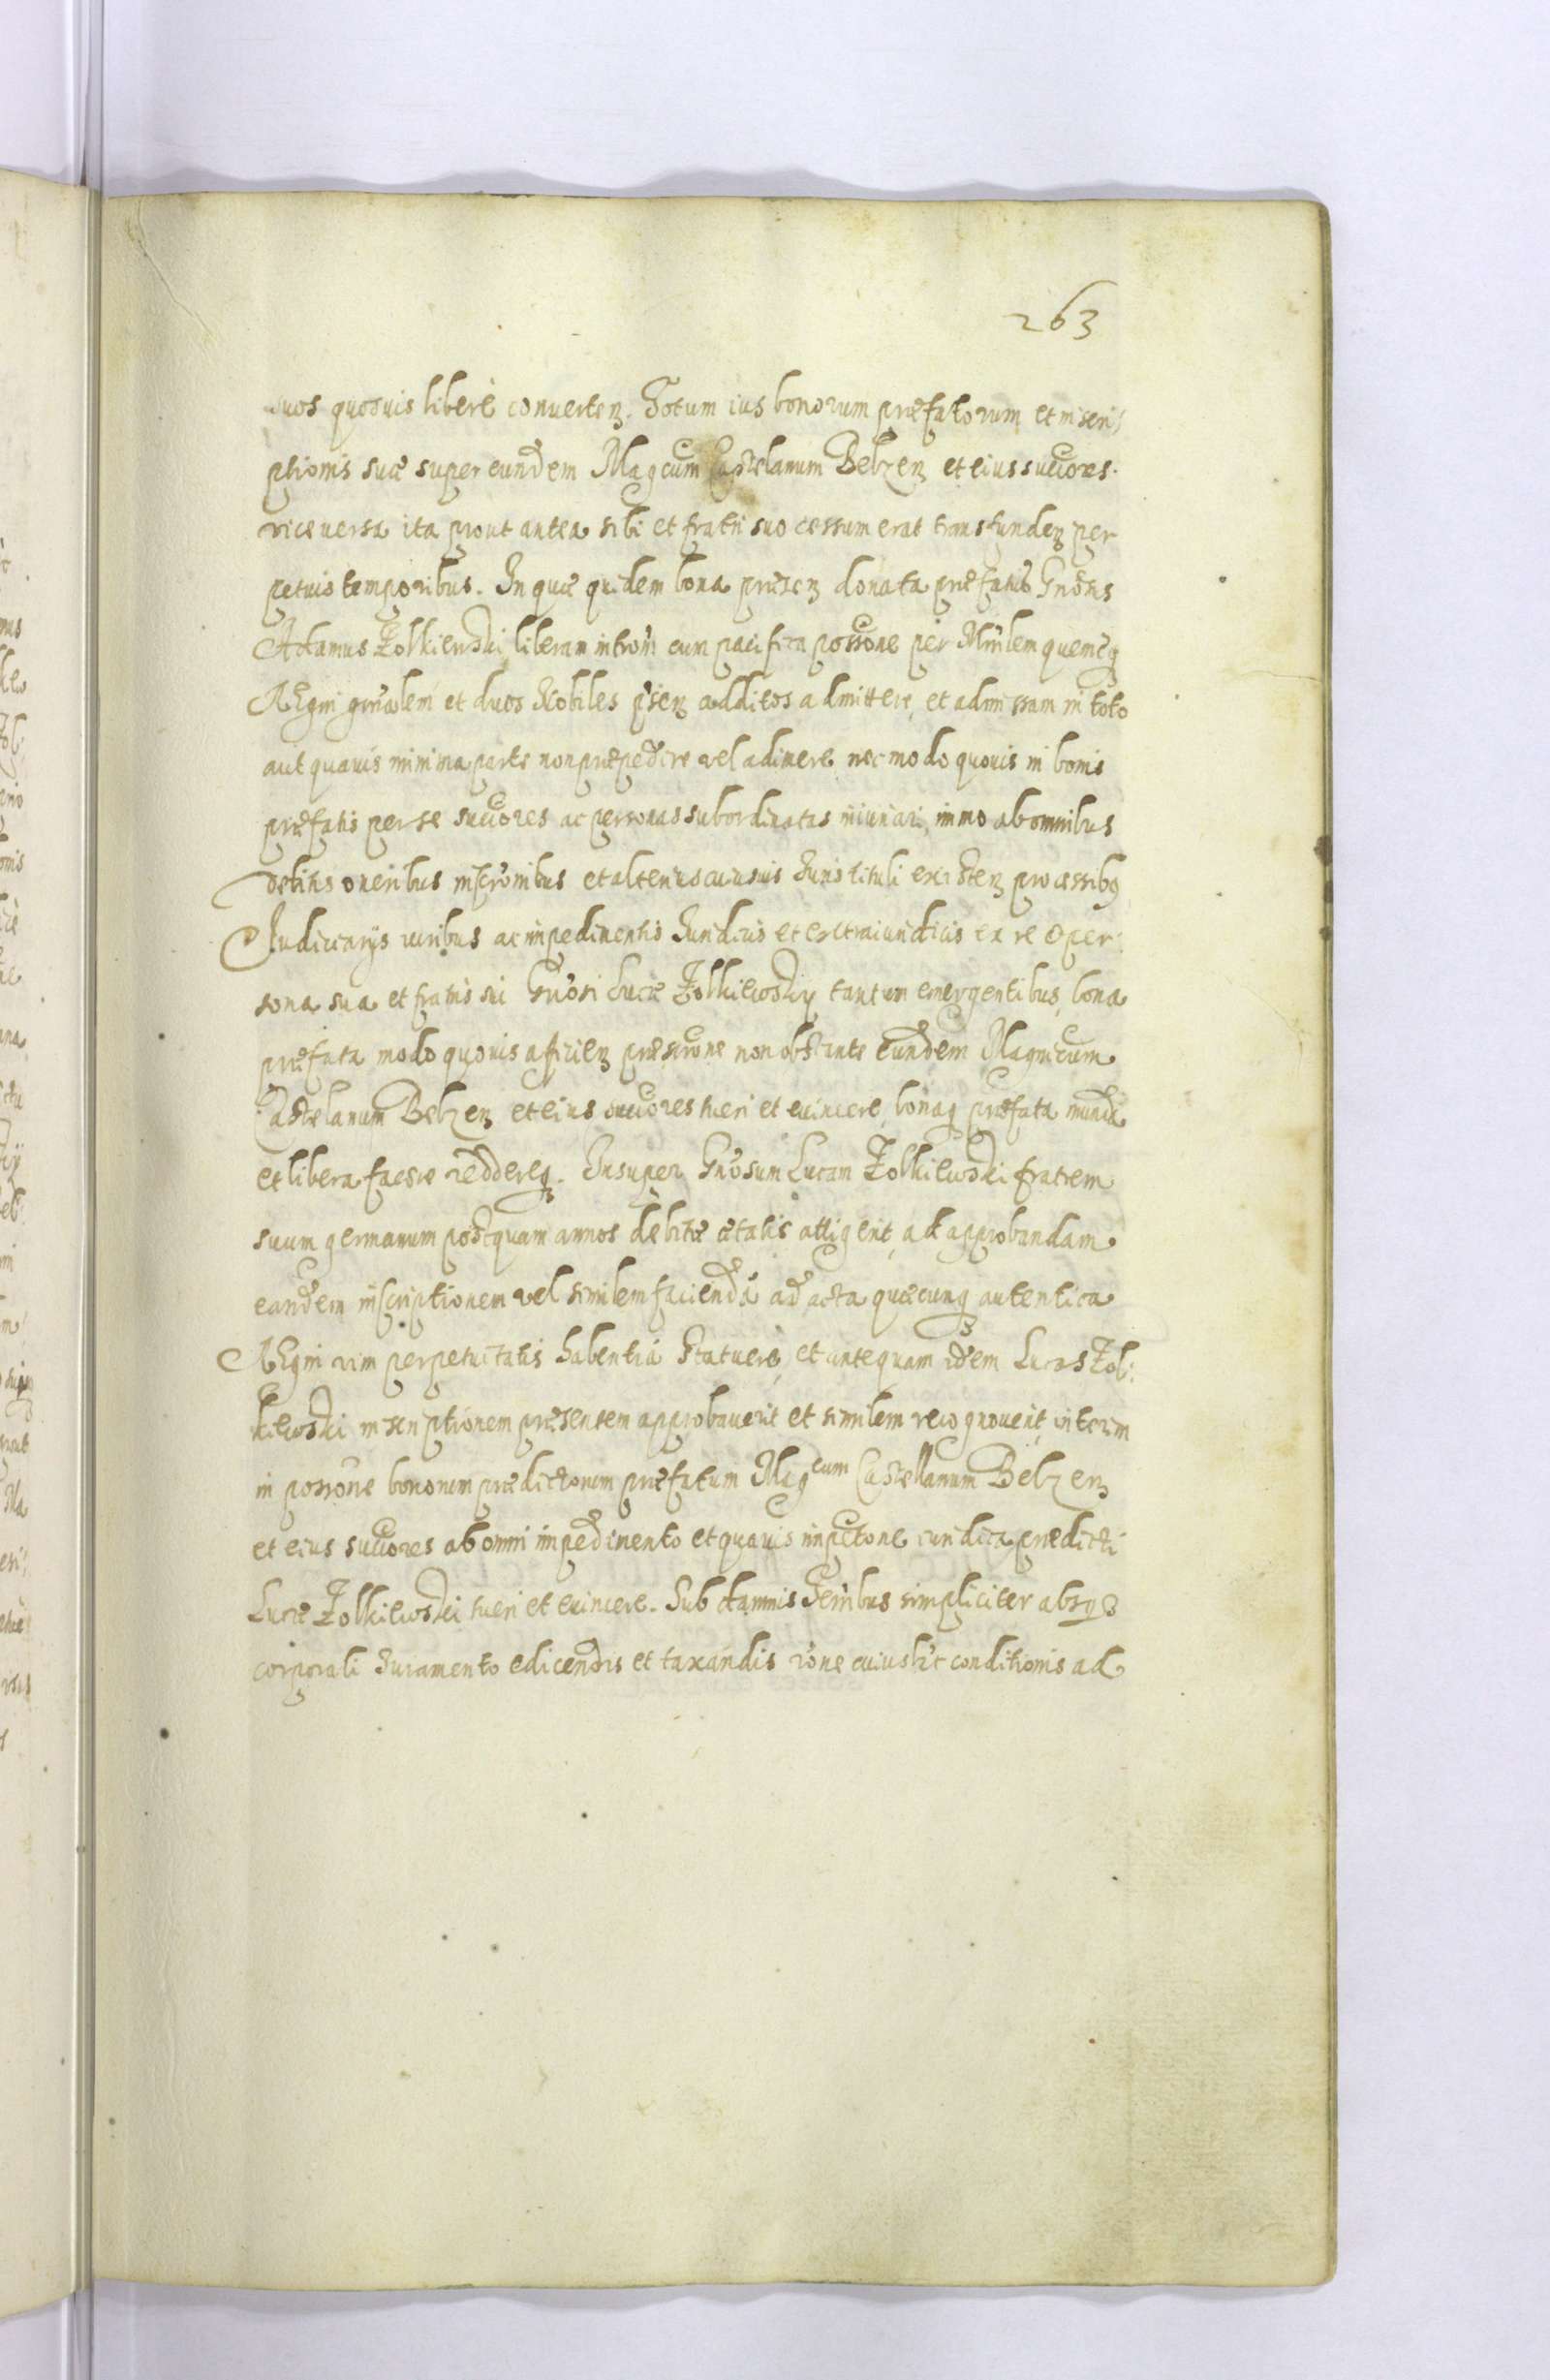 263
suos quosuis liberè conuerten. Totum ius bonorum præfatorum et inscri/
ptionis suæ super eundem Magcum Castelanum Belzen et eius succores.
vice versa ita prout antea sibi et fratri suo cessum erat transfunden per
petuis temporibus. In quæ quidem bona præsen donata præfatus Gnosus
Adamus Żolkiewski, liberam introm cum pacifica possone per Minlem quemq
REgni gnralem et duos Nobiles psen additos admittere, et admissam in toto
aut quauis minima parte non præpedire vel adimere nec modo quouis in bonis
præfatis per se succores ac personas subordinatas iniuriari, immo ab omnibus
debitis oneribus inscronibus et alterius cuiusuis Iuris tituli existen processibq
Iudiciarijs iuribus ac impedimentis Iuridicis et extraiuridicis ex re et per
sona sua et fratris sui Gnosi Lucæ Żolkiewskÿ tantum emergentibus, bona
præfata modo quouis aficien præscrone non obstante eundem Magnicum
Castelanum Belzen et eius succores tueri et euincere, bonaq præfata munda
et libera facere reddereq. Insuper Gnosum Lucam Żolkiewski fratrem
suum germanum postquam annos debitæ ætatis attigerit, ad approbandam
eandem inscriptionem vel similem faciendã ad acta quæcunq autentica
REgni vim perpetuitatis habentia Statuere, et antequam idem Lucas Żol:
kiewski inscriptionem præsentem approbauerit et similem recognouerit, interim
in possone bonorum prædictorum præfatum Magcum Castellanum Belzen
et eius succores ab omni impedimento et quauis impetone iuridica prædicti
Lucæ Żolkiewski tueri et euincere. Sub damnis Terribus simpliciter absq
corporali Iuramento edicendis et taxandis rone cuiuslt conditionis ad